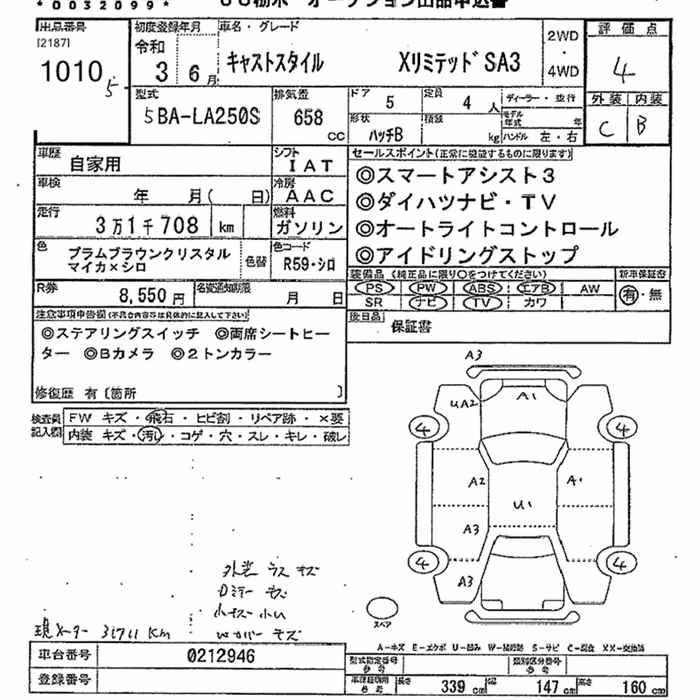 *0032099*
出品番号
[2187]
1010 5
初度登録年月
令和
3 6月
車名・グレード
キャストスタイル XリミテッドSA3
2WD
・
4WD
評価点
4
型式
5BA-LA250S
排気量
658 CC
ドア 5
定員 4 人
形状 ハッチB
積載 kg
ディーラー・並行
モデル年式 年
ハンドル 左・右
外装 内装
C B
車歴
自家用
シフト
IAT
車検
年 月( 日)
冷房
AAC
走行
3万1千708 km
燃料
ガソリン
色
プラムブラウンクリスタル
マイカ×シロ
色替
色コード
R59・シロ
セールスポイント(正常に機能するものに限ります)
◎スマートアシスト3
◎ダイハツナビ・TV
◎オートライトコントロール
◎アイドリングストップ
装備品 (純正品に限り○をつけてください)
PS PW ABS エアB AW
SR ナビ TV カワ
新車保証書
有・無
R券
8,550円
名変通知期限
月 日
後日品
保証書
注意事項申告欄(不具合内容等は具体的に記入して下さい)
◎ステアリングスイッチ ◎両席シートヒー
ター ◎Bカメラ ◎2トンカラー
修復歴 有〔箇所 〕
検査員
記入欄
FW キズ・飛石・ヒビ割・リペア跡・×要
内装 キズ・汚レ・コゲ・穴・スレ・キレ・破レ
A3
UA2
A1
4
4
A2
A1
U1
A3
4
4
A3
スペア
外装 ラス キズ
ロミラー キズ
小キズ小U
Wカバー キズ
現メーター 31711 Km
A-キズ E-エクボ U-凹み W-補修跡 S-サビ C-腐食 XX-交換済
車台番号
0212946
登録番号
型式指定番号
参考
類別区分番号
参考
車両諸元用
参考
長さ 339 cm 幅 147 cm 高さ 160 cm